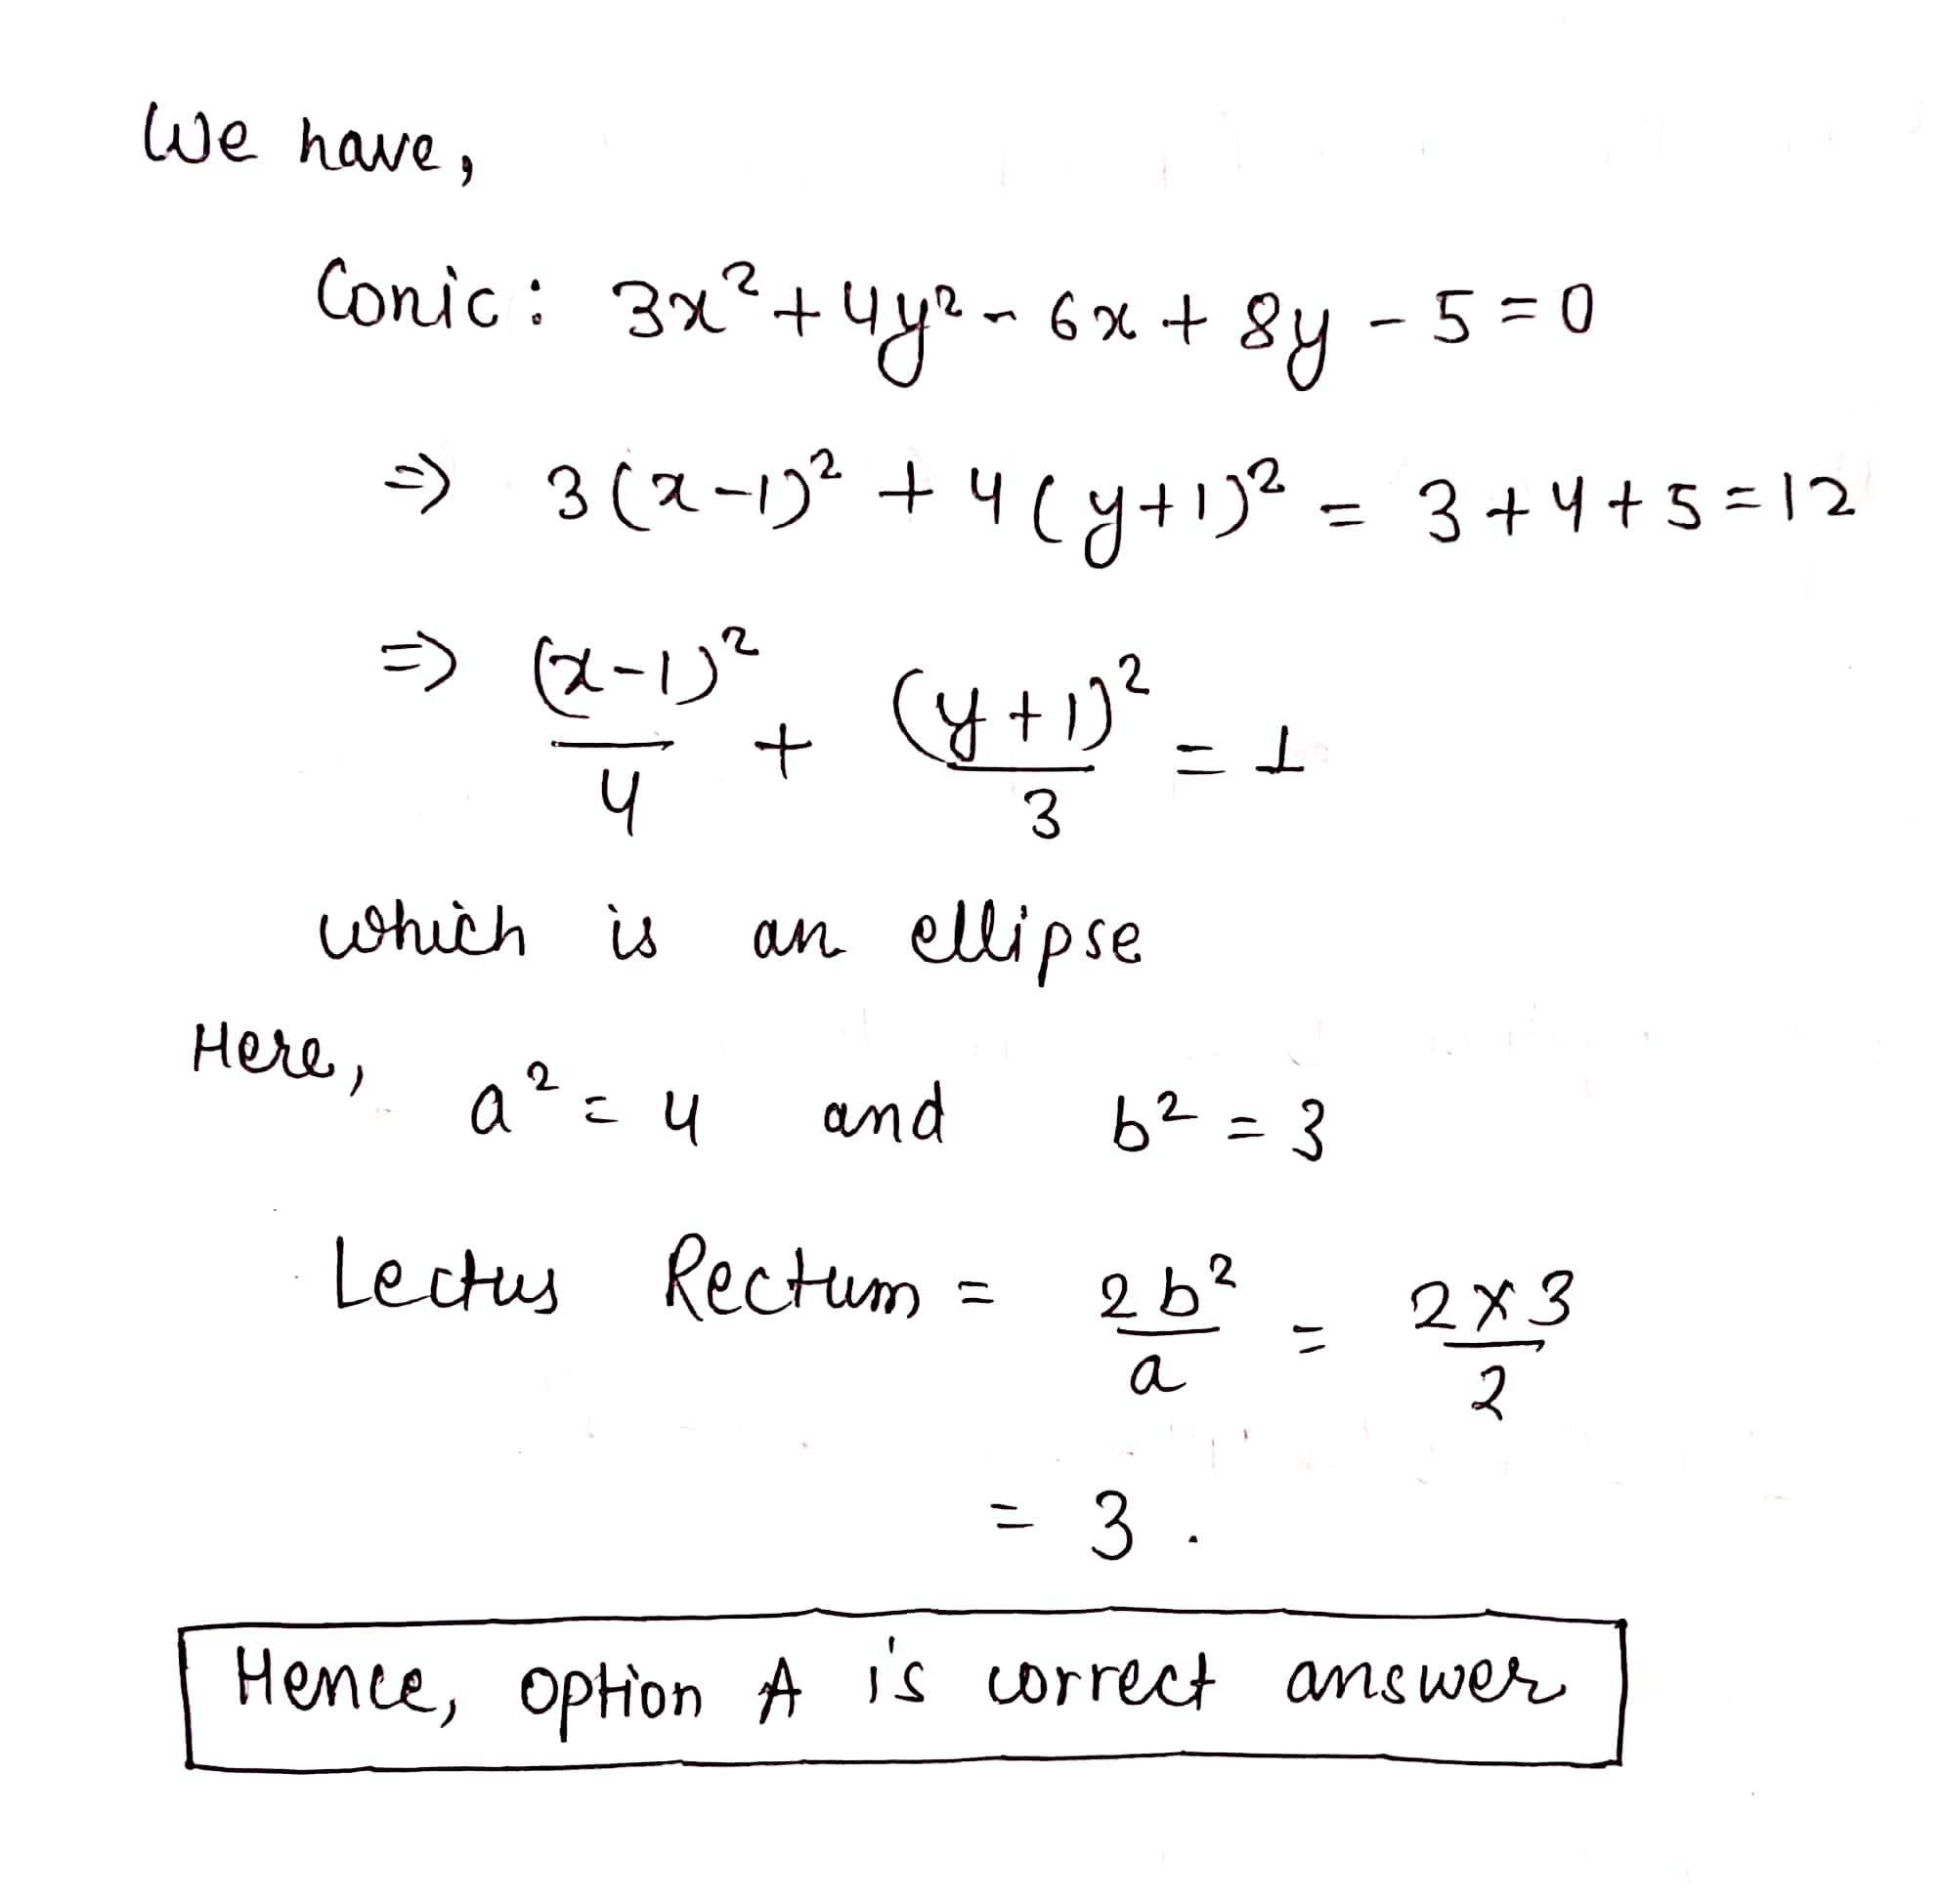 We have,
Conic: 3x² + 4y² - 6x + 8y - 5 = 0
=> 3(x-1)² + 4(y+1)² = 3+4+5=12
=> (x-1)²/4 + (y+1)²/3 = 1
which is an ellipse
Here, a² = 4 and b² = 3
Lectus Rectum = 2b²/a = 2×3/2
= 3.
Hence, option A is correct answer